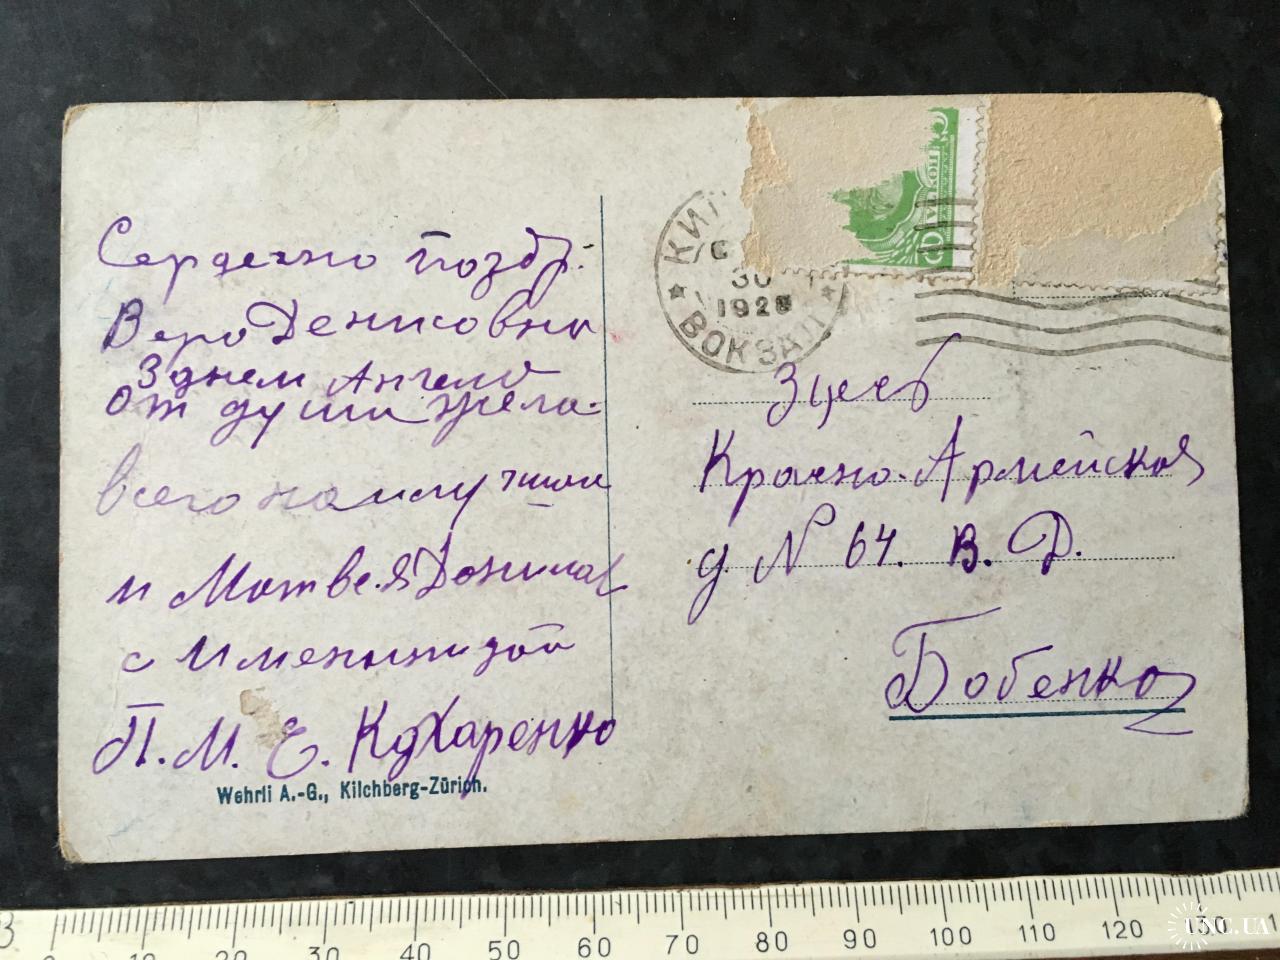 Сердечно поздр.
Веро Денисовна
З днем Ангела
от души жела-
всего наилучшаи
и Матвея Данилов
с Именинзой
П. М. Е. Кухаренко
Wehrli A.-G., Kilchberg-Zürich.
1928
ВОКЗАЛ
КОП
Здесь
Красно-Армейская
д N 64. В. Д.
Бобенко
0 10 20 30 40 50 60 70 80 90 100 110 120 130
UNC.UA